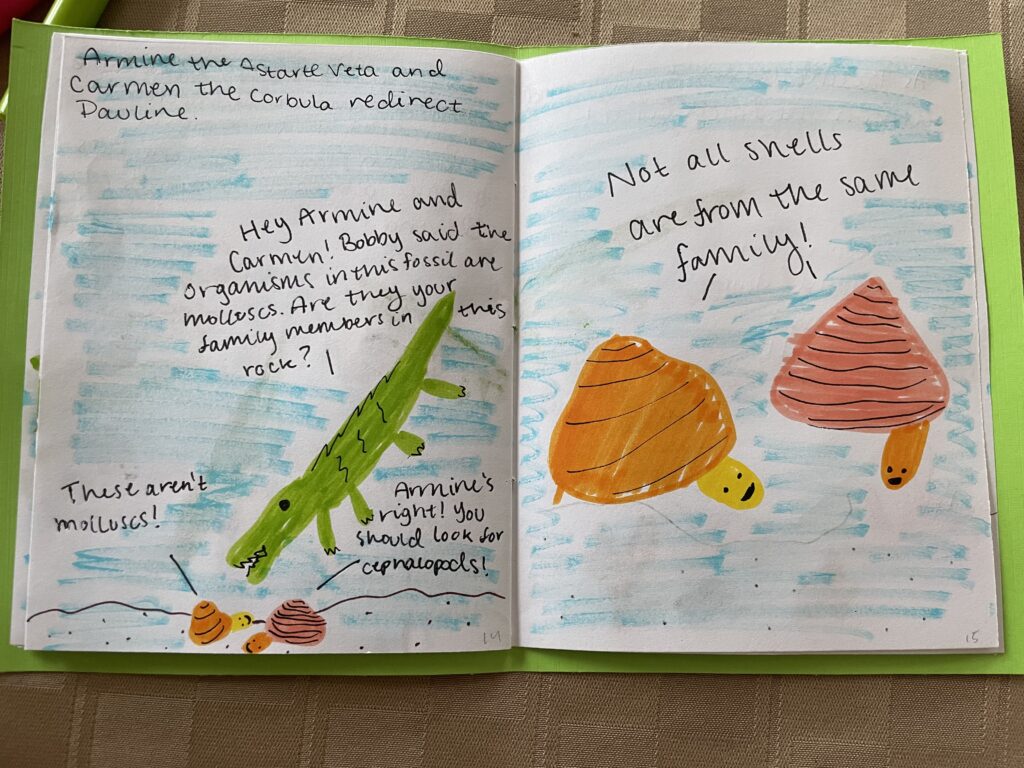 Armine the Astarte Veta and
Carmen the Corbula redirect
Pauline.
Hey Armine and
Carmen! Bobby said the
organisms in this fossil are
molluscs. Are they your
family members in this
rock?
These aren't
molluscs!
Armine's
right! You
should look for
cephalopods!
14
Not all shells
are from the same
family!
15